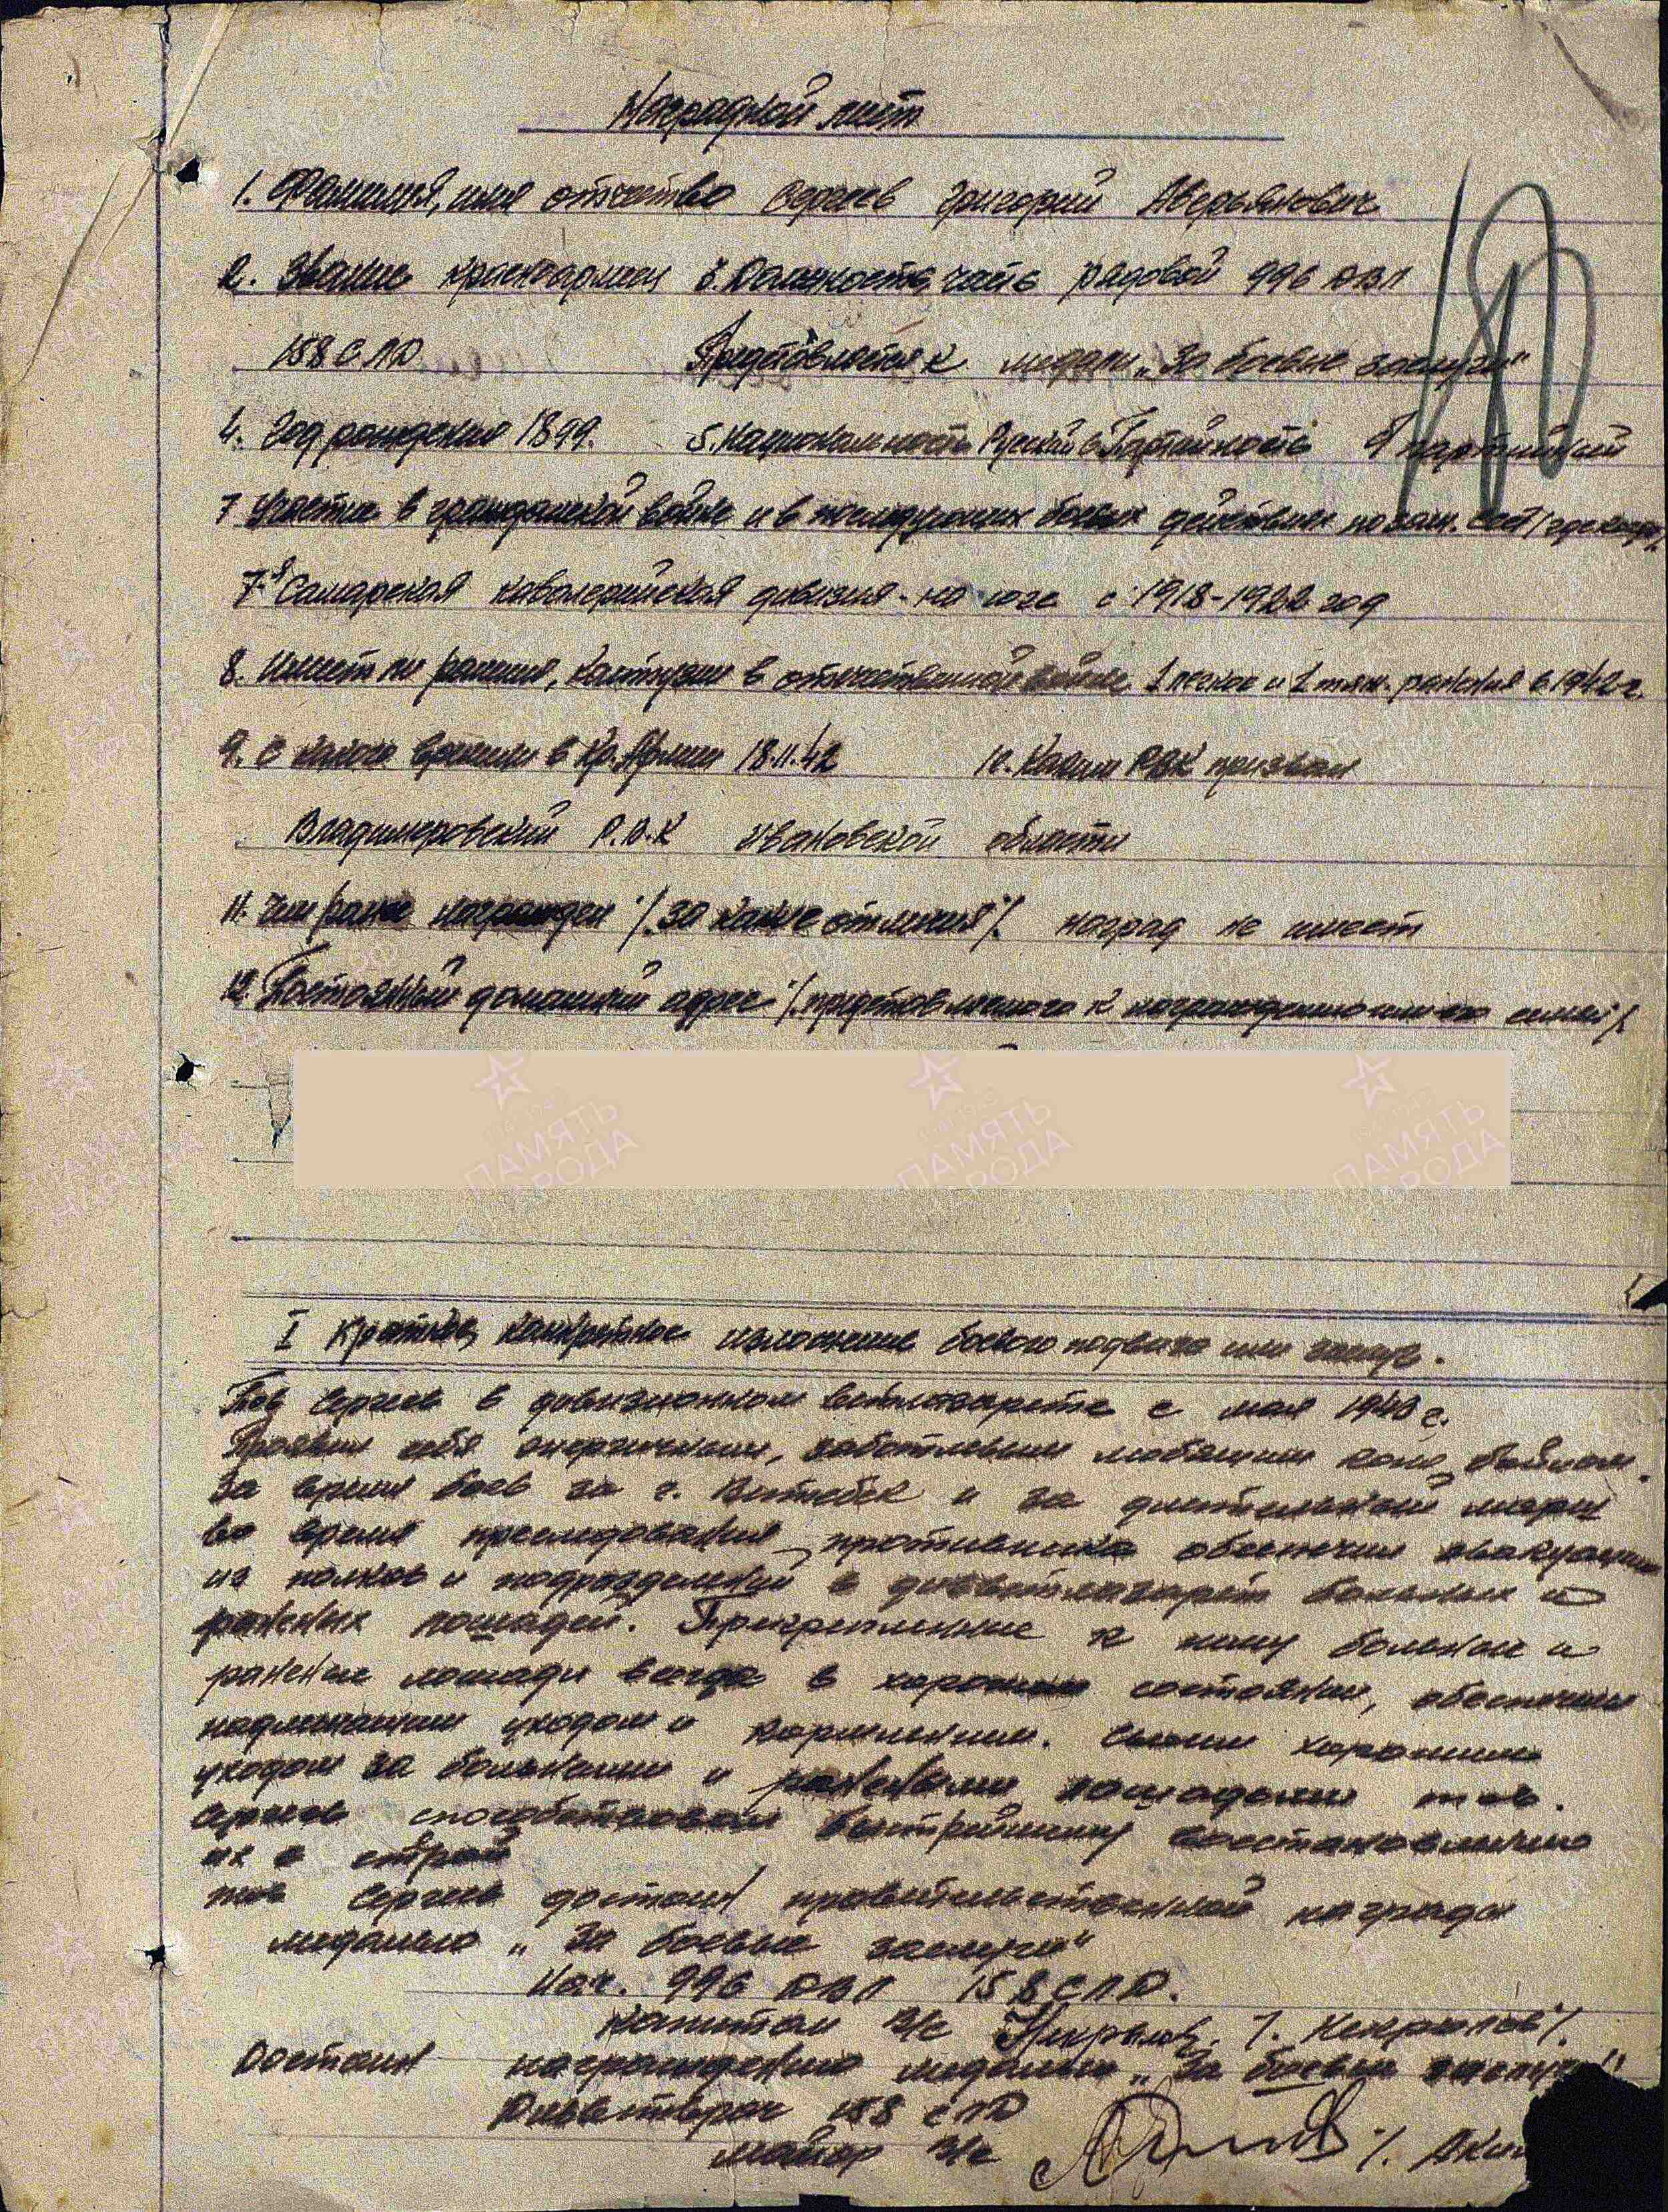 Наградной лист
180
1. Фамилия, имя отчество Сергеев Григорий Аверьянович
2. Звание красноармеец 3. Должность, часть рядовой 996 ДВЛ
158 С.Л.Д. Представляется к медали „За боевые заслуги"
4. Год рождения 1899. 5. Национальность Русский 6. Партийность б/партийный
7 Участие в гражданской войне и в последующих боевых действиях по защ. СССР /где когда/.
7-я Самарская кавалерийская дивизия - на юге с 1918-1922 год
8. Имеет ли ранения, контузии в отечественной войне. 1 легкое и 1 тяж. ранения в 1942 г.
9. С какого времени в Кр. Армии 18.11.42 10. Каким РВК призван
Владимировский Р.В.К Ивановской области
11. Чем ранее награжден /.за какие отличия/. наград не имеет
12. Постоянный домашний адрес /.представленного к награждению или его семьи/.
I Краткое, конкретное изложение боевого подвига или заслуг.
Тов Сергеев в дивизионном ветлазарете с мая 1943 г.
Проявил себя энергичным, заботливым любящим коня бойцом.
За время боев за г. Витебск и за
во время преследования противника обеспечил эвакуацию
из полков и подразделений в дивветлазарет больных и
раненых лошадей. Прикрепленные к нему больные и
раненые лошади всегда в хорошем состоянии, обеспечены
надлежащим уходом и кормлением. Своим хорошим
уходом за больными и ранеными лошадьми тов.
Сергеев способствовал быстрейшему восстановлению
их в строй
тов Сергеев достоин правительственной награды
медалью „За боевые заслуги"
Нач. 996 ДВЛ 158 С.Л.Д.
капитан в/с
Достоин награждению медалью „За боевые заслуги"
Дивветврач 158 СЛД
майор в/с /. Аки